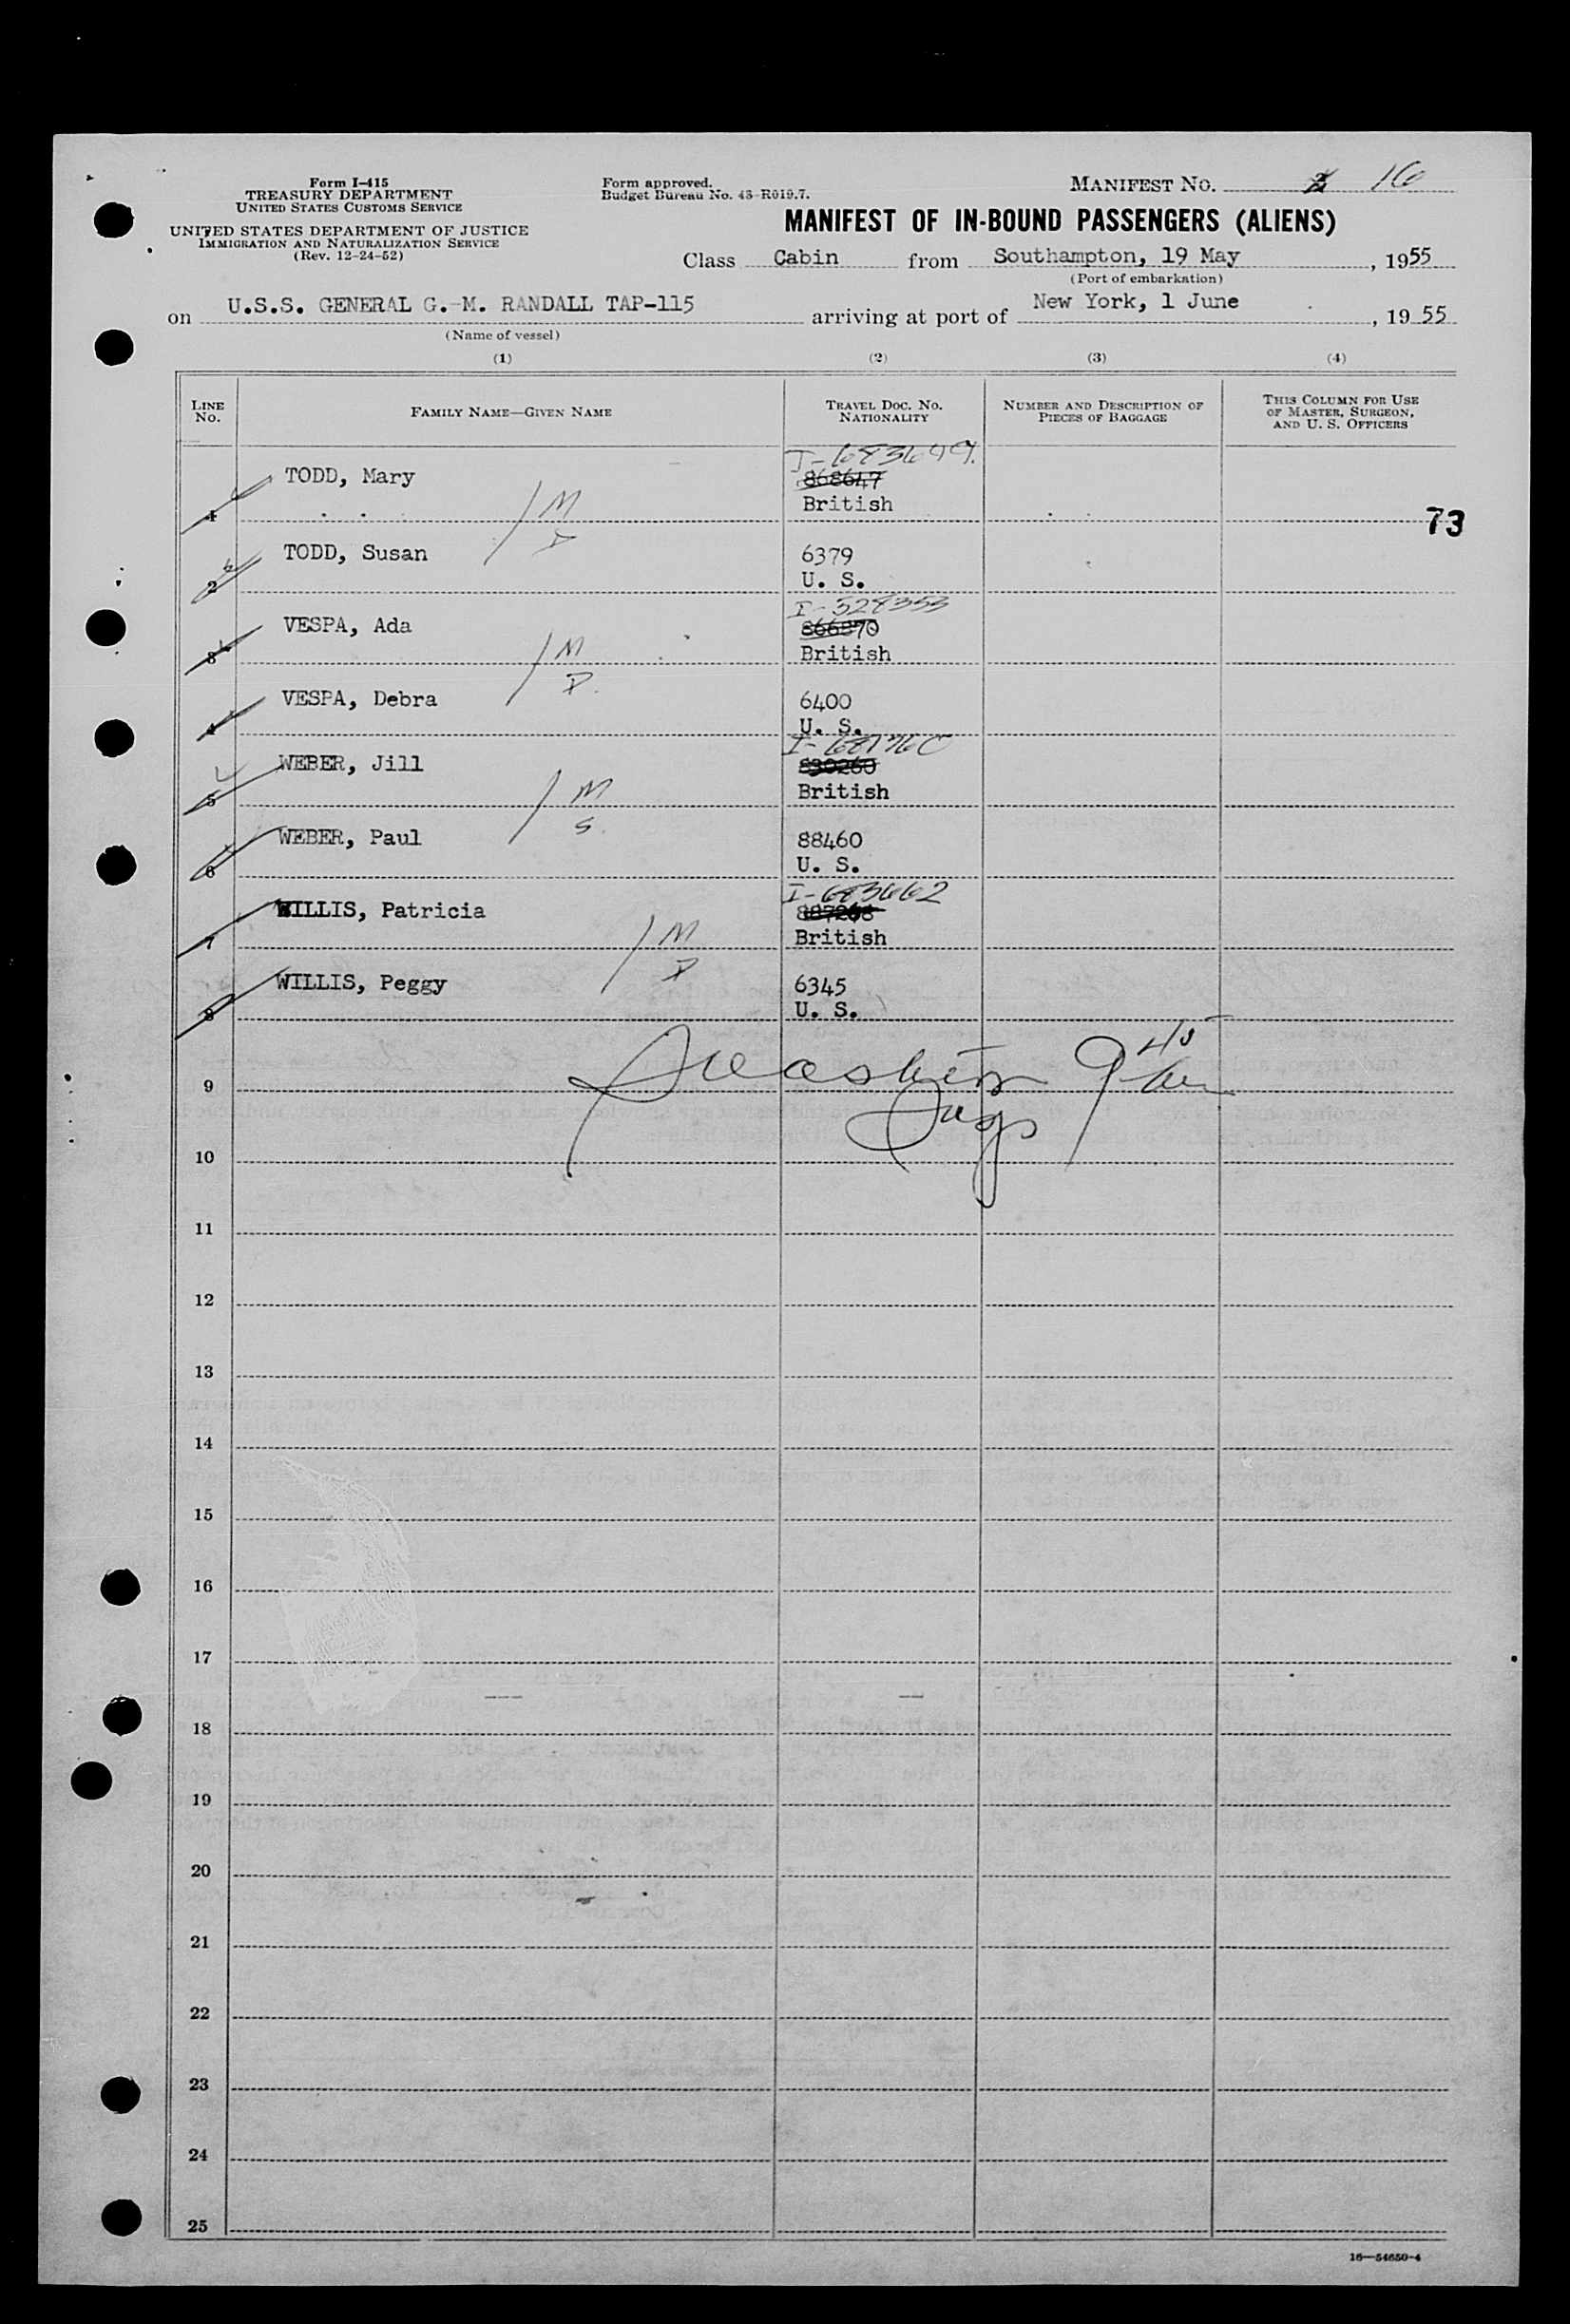 Form I-415
TREASURY DEPARTMENT
UNITED STATES CUSTOMS SERVICE
UNITED STATES DEPARTMENT OF JUSTICE
IMMIGRATION AND NATURALIZATION SERVICE
(Rev. 12-24-52)
Form approved.
Budget Bureau No. 43-R019.7.
MANIFEST NO. 16
MANIFEST OF IN-BOUND PASSENGERS (ALIENS)
Class Cabin from Southampton, 19 May, 1955
(Port of embarkation)
on U.S.S. GENERAL G. M. RANDALL TAP-115 arriving at port of New York, 1 June, 1955
(Name of vessel)
(1) (2) (3) (4)
LINE NO. FAMILY NAME—GIVEN NAME TRAVEL DOC. NO. NATIONALITY NUMBER AND DESCRIPTION OF PIECES OF BAGGAGE THIS COLUMN FOR USE OF MASTER, SURGEON, AND U. S. OFFICERS
I-683699
TODD, Mary 868647
1 M British
73
D
TODD, Susan 6379
2 U. S.
I-528353
VESPA, Ada 866870
3 M British
D.
VESPA, Debra 6400
4 U. S.
WEBER, Jill 830260
5 M British
S.
WEBER, Paul 88460
6 U. S.
I-683662
WILLIS, Patricia
7 M British
D
WILLIS, Peggy 6345
8 U. S.
9
10
11
12
13
14
15
16
17
18
19
20
21
22
23
24
25
16—54650-4